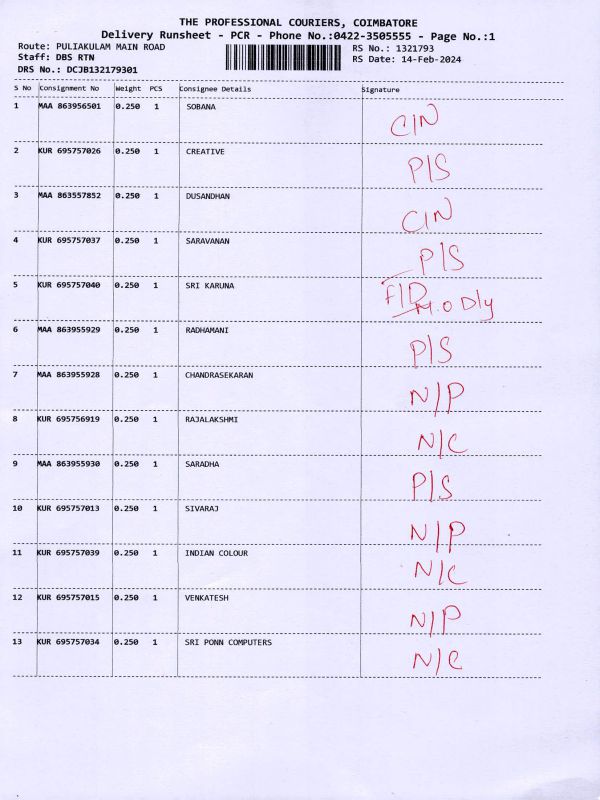 THE PROFESSIONAL COURIERS, COIMBATORE
Delivery Runsheet - PCR - Phone No.:0422-3505555 - Page No.:1
Route: PULIAKULAM MAIN ROAD RS No.: 1321793
Staff: DBS RTN RS Date: 14-Feb-2024
DRS No.: DCJB132179301
S No Consignment No Weight PCS Consignee Details Signature
1 MAA 863956501 0.250 1 SOBANA C/N
2 KUR 695757026 0.250 1 CREATIVE P/S
3 MAA 863557852 0.250 1 DUSANDHAN C/N
4 KUR 695757037 0.250 1 SARAVANAN P/S
5 KUR 695757040 0.250 1 SRI KARUNA F/D
M.O Dly
6 MAA 863955929 0.250 1 RADHAMANI P/S
7 MAA 863955928 0.250 1 CHANDRASEKARAN N/P
8 KUR 695756919 0.250 1 RAJALAKSHMI N/C
9 MAA 863955930 0.250 1 SARADHA P/S
10 KUR 695757013 0.250 1 SIVARAJ N/P
11 KUR 695757039 0.250 1 INDIAN COLOUR N/C
12 KUR 695757015 0.250 1 VENKATESH N/P
13 KUR 695757034 0.250 1 SRI PONN COMPUTERS N/C